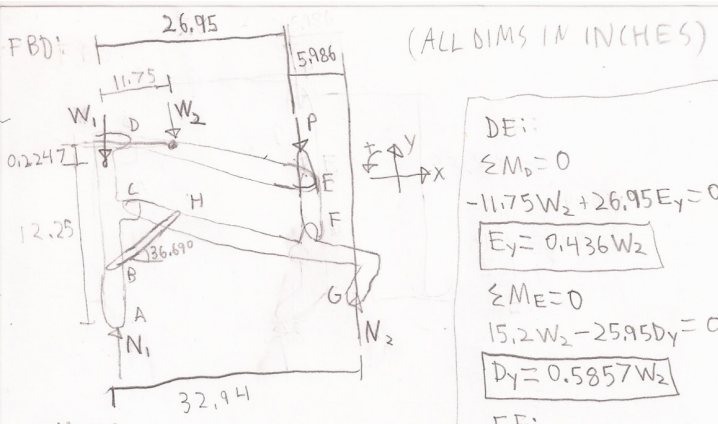 FBD:
26.95
(ALL DIMS IN INCHES)
5.986
11.75
W₁
D
W₂
P
0.2247
+
Y
X
E
C
H
F
12.25
36.690
B
G
A
N₁
N₂
32.94
DE:
ΣM_D=0
-11.75W₂+26.95E_y=0
E_y=0.436W₂
ΣM_E=0
15.2W₂-25.95D_y=0
D_y=0.5857W₂